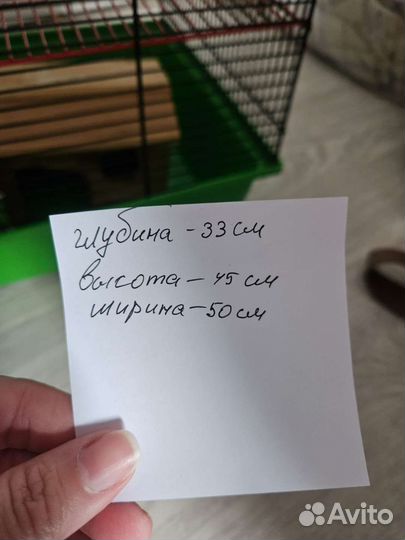 глубина - 33 см
высота - 45 см
ширина - 50 см
Avito